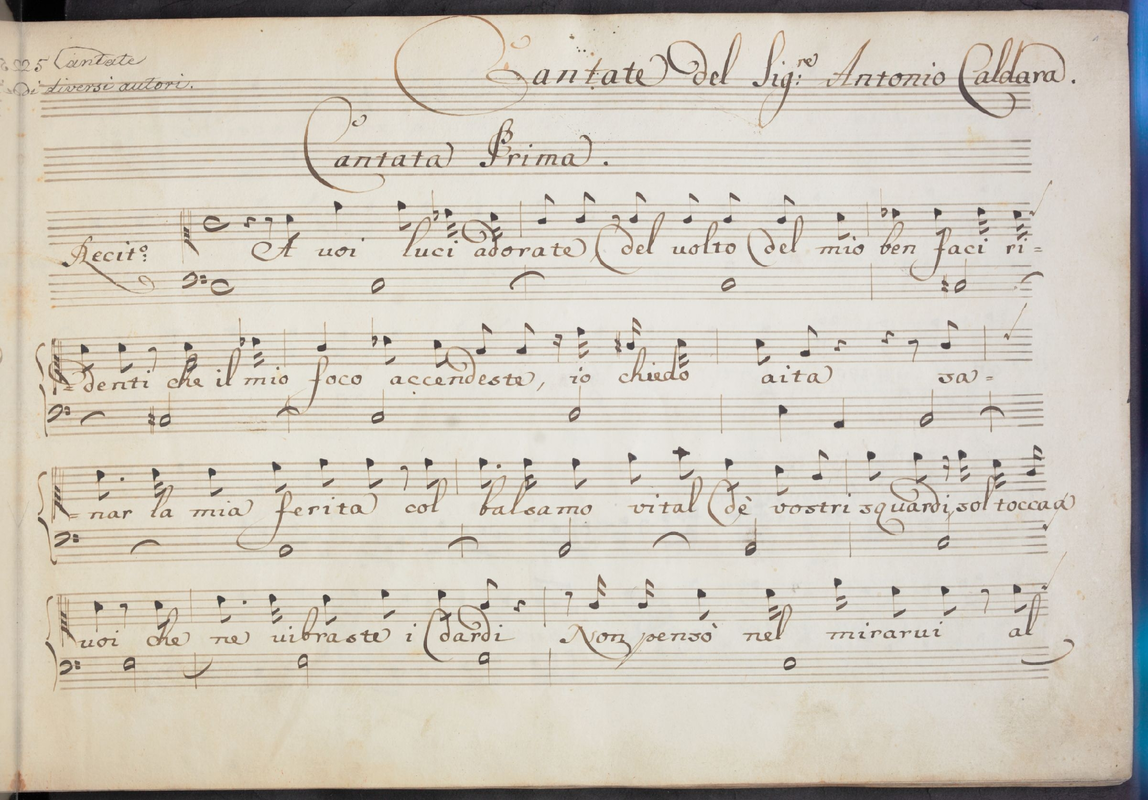 225 Cantate
di diversi autori.
Cantate del Sig:re Antonio Caldara.
Cantata Prima.
Recit:o
A voi luci adorate del volto del mio ben faci ri=
=denti che il mio foco accendeste, io chiedo aita sa=
=nar la mia ferita col balsamo vital dè vostri sguardi, sol tocca a
voi che ne vibraste i dardi Non pensò nel mirarvi al